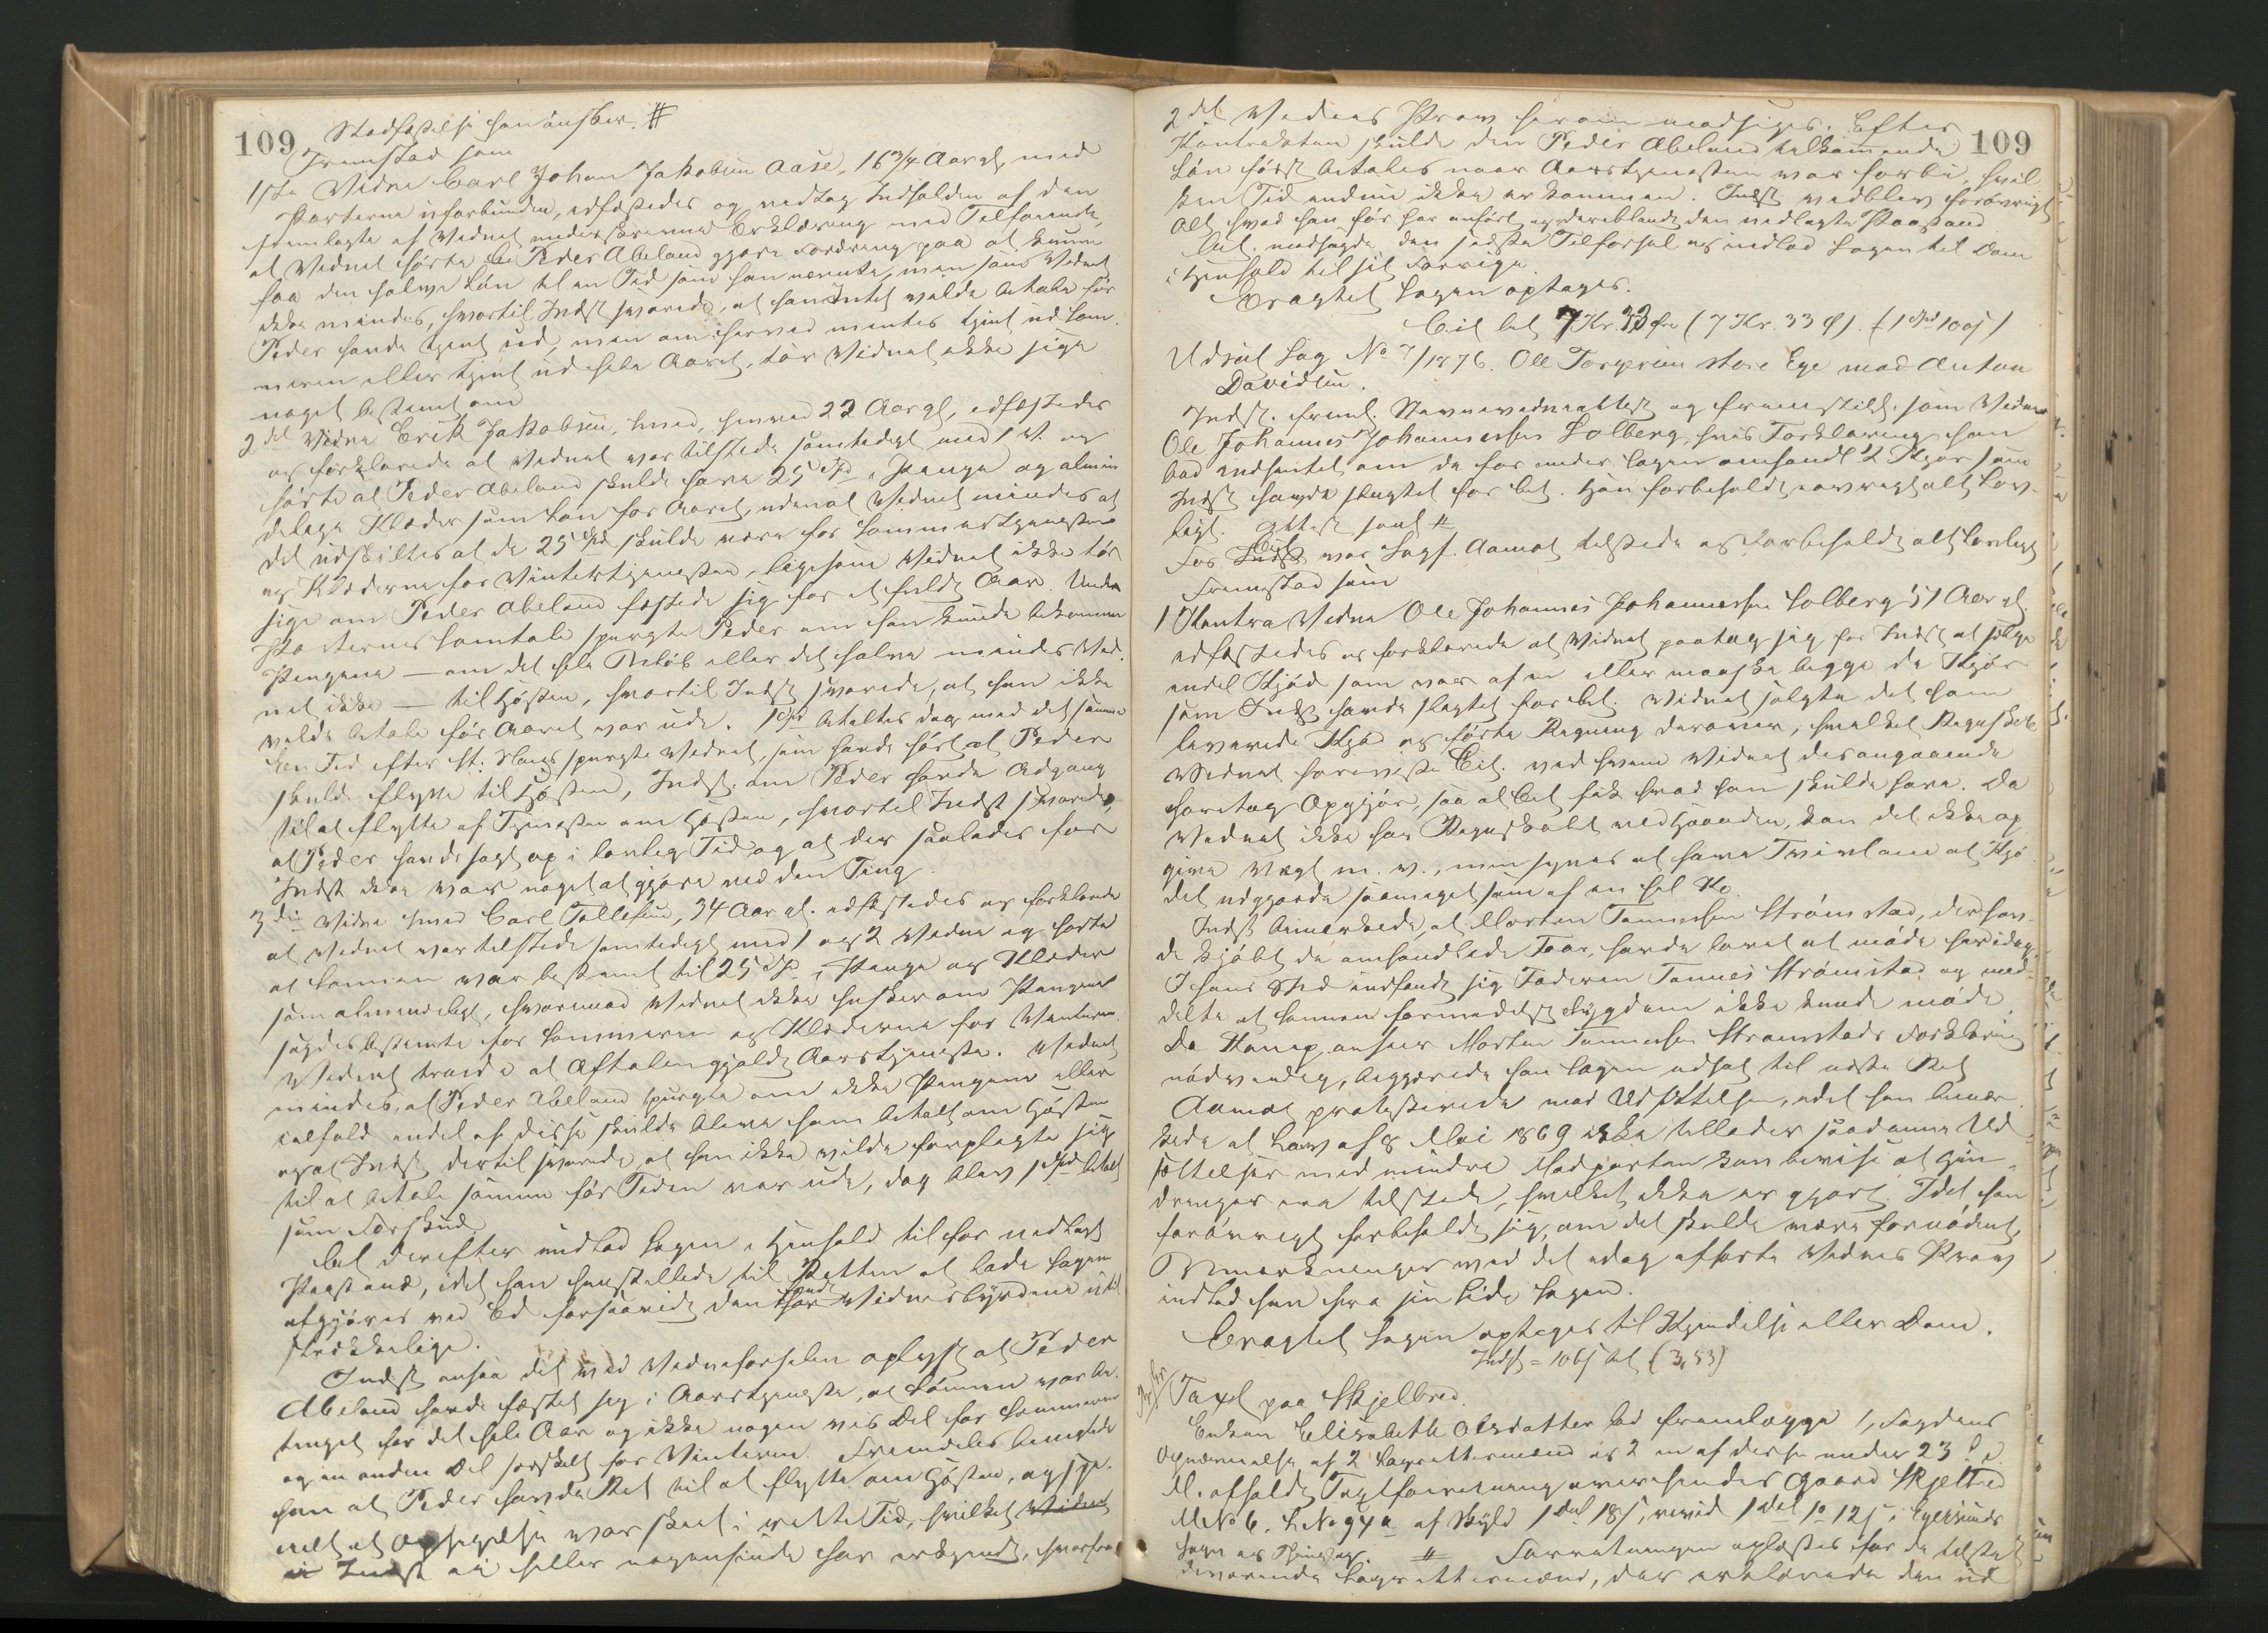 109 Stadfæstelse han ønsker. #
Fremstod som
1ste Vidne Carl Johan Jakobsen Aase, 16 3/4 Aar gl, med
Parterne uforbunden, edfæstedes og vedtog Indholdet af den
fremlagte af Vidnet underskrevne Erklæring med Tilføiende,
at Vidnet hørte Peder Abeland gjøre Fordring paa at kunne
faa den halve Løn til en Tid som han nævnte, men som Vidnet
ikke mindes, hvortil Indst svarede, at han Intet vilde betale før
Peder havde tjent ud, men om herved mentes tjent ud Som-
meren eller tjent ud hele Aaret, tør Vidnet ikke sige
noget bestemt om
2det Vidne Erik Jakobsen, Smed, 22 Aar gl, edfæstedes
og forklarede at Vidnet var tilstede samtidigt med 1 V. og
hørte at Peder Abeland skulde have 25 Spd i Penge og almin
delige Klæder som Løn for Aaret, uden at Vidnet mindes at
det udskiltes at de 25 Spd skulde være for Sommertjenesten
og Klæderne for Vintertjenesten, ligesom Vidnet ikke tør
sige om Peder Abeland fæstede sig for et fuldt Aar. Under
Parternes Samtale spurgte Peder om han kunde bekomme
Pengene — om det hele Beløb eller det halve mindes Vid-
net ikke — til Høsten, hvortil Indst svarede, at han ikke
vilde betale før Aaret var ude. 1 Spd betaltes dog med det samme
En Tid efter St: Hans spurgte Vidnet, som havde hørt at Peder
skulde flytte til Høsten, Indst. om Peder havde Adgang
til at flytte af Tjenesten om Høsten, hvortil Indst svarede,
at Peder havde sagt op i lovlig Tid og at der saaledes for
Indst ikke var noget at gjøre ved den Ting.
3die Vidne Smed Carl Tollefsen, 34 Aar gl. edfæstedes og forklarede
at Vidnet var tilstede samtidigt med 1 og 2 Vidne og hørte
at Lønnen var bestemt til 25 Spd i Penge og Klæder
som almindeligt, hvorimod Vidnet ikke husker om Pengene
sagdes bestemte for Sommeren og Klæderne for Vinteren.
Vidnet troede at Aftalen gjaldt Aarstjeneste. Vidnet
mindes, at Peder Abeland spurgte om ikke Pengene eller
ialfald endel af disse skulde blive ham betalt om Høsten
og at Indst dertil svarede at han ikke vilde forpligte sig
til at betale samme før Tiden var ude, dog blev 1 Spd betalt
som Forskud
Cit derefter indlod Sagen i Henhold til før nedlagt
Paastand, idet han henstillede til Retten at lade Sagen
afgjøres ved Ed forsaavidt den fandt Vidnesbyrdene util
strækkelige.
Indst ansaa det ved Vidneførselen oplyst at Peder
Abeland havde fæstet sig i Aarstjeneste, at Lønnen var be-
tinget for det hele Aar og ikke nogen vis Del for Sommeren
og en anden Del særskilt for Vinteren. Fremdeles benegtede
han at Peder havde Ret til at flytte om Høsten, og spe-
cielt at Opsigelse var skeet i rette Tid, hvilket
Indst ei heller nogensinde har erkjendt, hvorfor
109
2det Vidnes Prov herom modsiges. Efter
Kontrakten skulde den Peder Abeland tilkommende
Løn først betales naar Aarstjenesten var forbi, hvil-
ken Tid endnu ikke er kommen. Indst vedblev forøvrigt
alt hvad han før har anført og deriblandt den nedlagte Paastand
Cit. modsagde den sidste Tilførsel og indlod Sagen til Dom
i Henhold til sit Forrige.
Eragtet Sagen optages.
Cit bet 7 Kr. 33 Øre (7 Kr. 33 Ø). (1 Spd 100 s)
Udsat Sag No 7/1876. Ole Torgersen store Ege mod Anton
Davidsen.
Indst. freml. Stævnevidneattest og fremstillede som Vidne
Ole Johannes Johannessen Solberg, hvis Forklaring han
bad indhentet om de før under Sagen omhandl 2 Kjør som
Indst havde slagtet for Cit. Han forbeholdt iøvrigt alt Lov-
ligt.
For Cit var Sagf. Aamot tilstede og forbeholdt alt Lovligt
Fremstod som
1 Kontra Vidne Ole Johannes Johannessen Solberg 51 Aar gl.
edfæstedes og forklarede at Vidnet paatog sig for Indst at sælge
endel Kjød som var af en eller maaske begge de Kjør
som Indst havde slagtet for Cit. Vidnet solgte det ham
leverede Kjød og førte Regning derover, hvilket Regnskab
Vidnet foreviste Cit. ved hvem Vidnet desangaaende
foretog Opgjør, saa at Cit fik hvad han skulde have. Da
Vidnet ikke har Regnskabet ved Haanden, kan det ikke op
give Vægt m. v., men synes at have Tvivl om at Kjø-
det udgjorde saameget som af en hel Ko.
Indst bemærkede, at Morten Tønnessen Strømstad, der hav-
de kjøbt de omhandlede Faar, havde lovet at møde her idag.
I hans Sted indfandt sig Faderen Tønnes Strømstad og med-
delte at Sønnen formedelst Sygdom ikke kunde møde.
Da Komp. anser Morten Tønnessen Strømstads Forklaring
nødvendig, begjærede han Sagen udsat til næste Ret
Aamot protesterede mod Udsættelsen, idet han bemær-
kede at Lov af 8 Mai 1869 ikke tillader saadanne Ud-
sættelser med mindre Modparten kan bevise at Hin-
dringer ere tilstede, hvilket ikke er gjort. Idet han
forøvrigt forbeholdt sig, om det skulde være fornødent,
Bemærkninger ved det idag afførte Vidnes Prov
indlod han fra sin Side Sagen.
Eragtet Sagen optages til Kjendelse eller Dom.
Indst = 106 s bet (3,53)
Taxt paa Skjelbred.
Enken Elisabeth Olsdatter lod fremlægge 1, Fogdens
Opnævnelse af 2 Lagrettesmænd og 2 en af disse under 23 f.
M. afholdt Taxtforretning over hendes Gaard Skjelbred
M No 6, L No 94a af Skyld 1 Dal 18 s, revid 1 Dal 1 o 12 s, i Egersunds
Sogn og Thinglag. # Forretningen oplæstes for de tilsted-
eværende Lagrettesmænd, der erklærede den ud